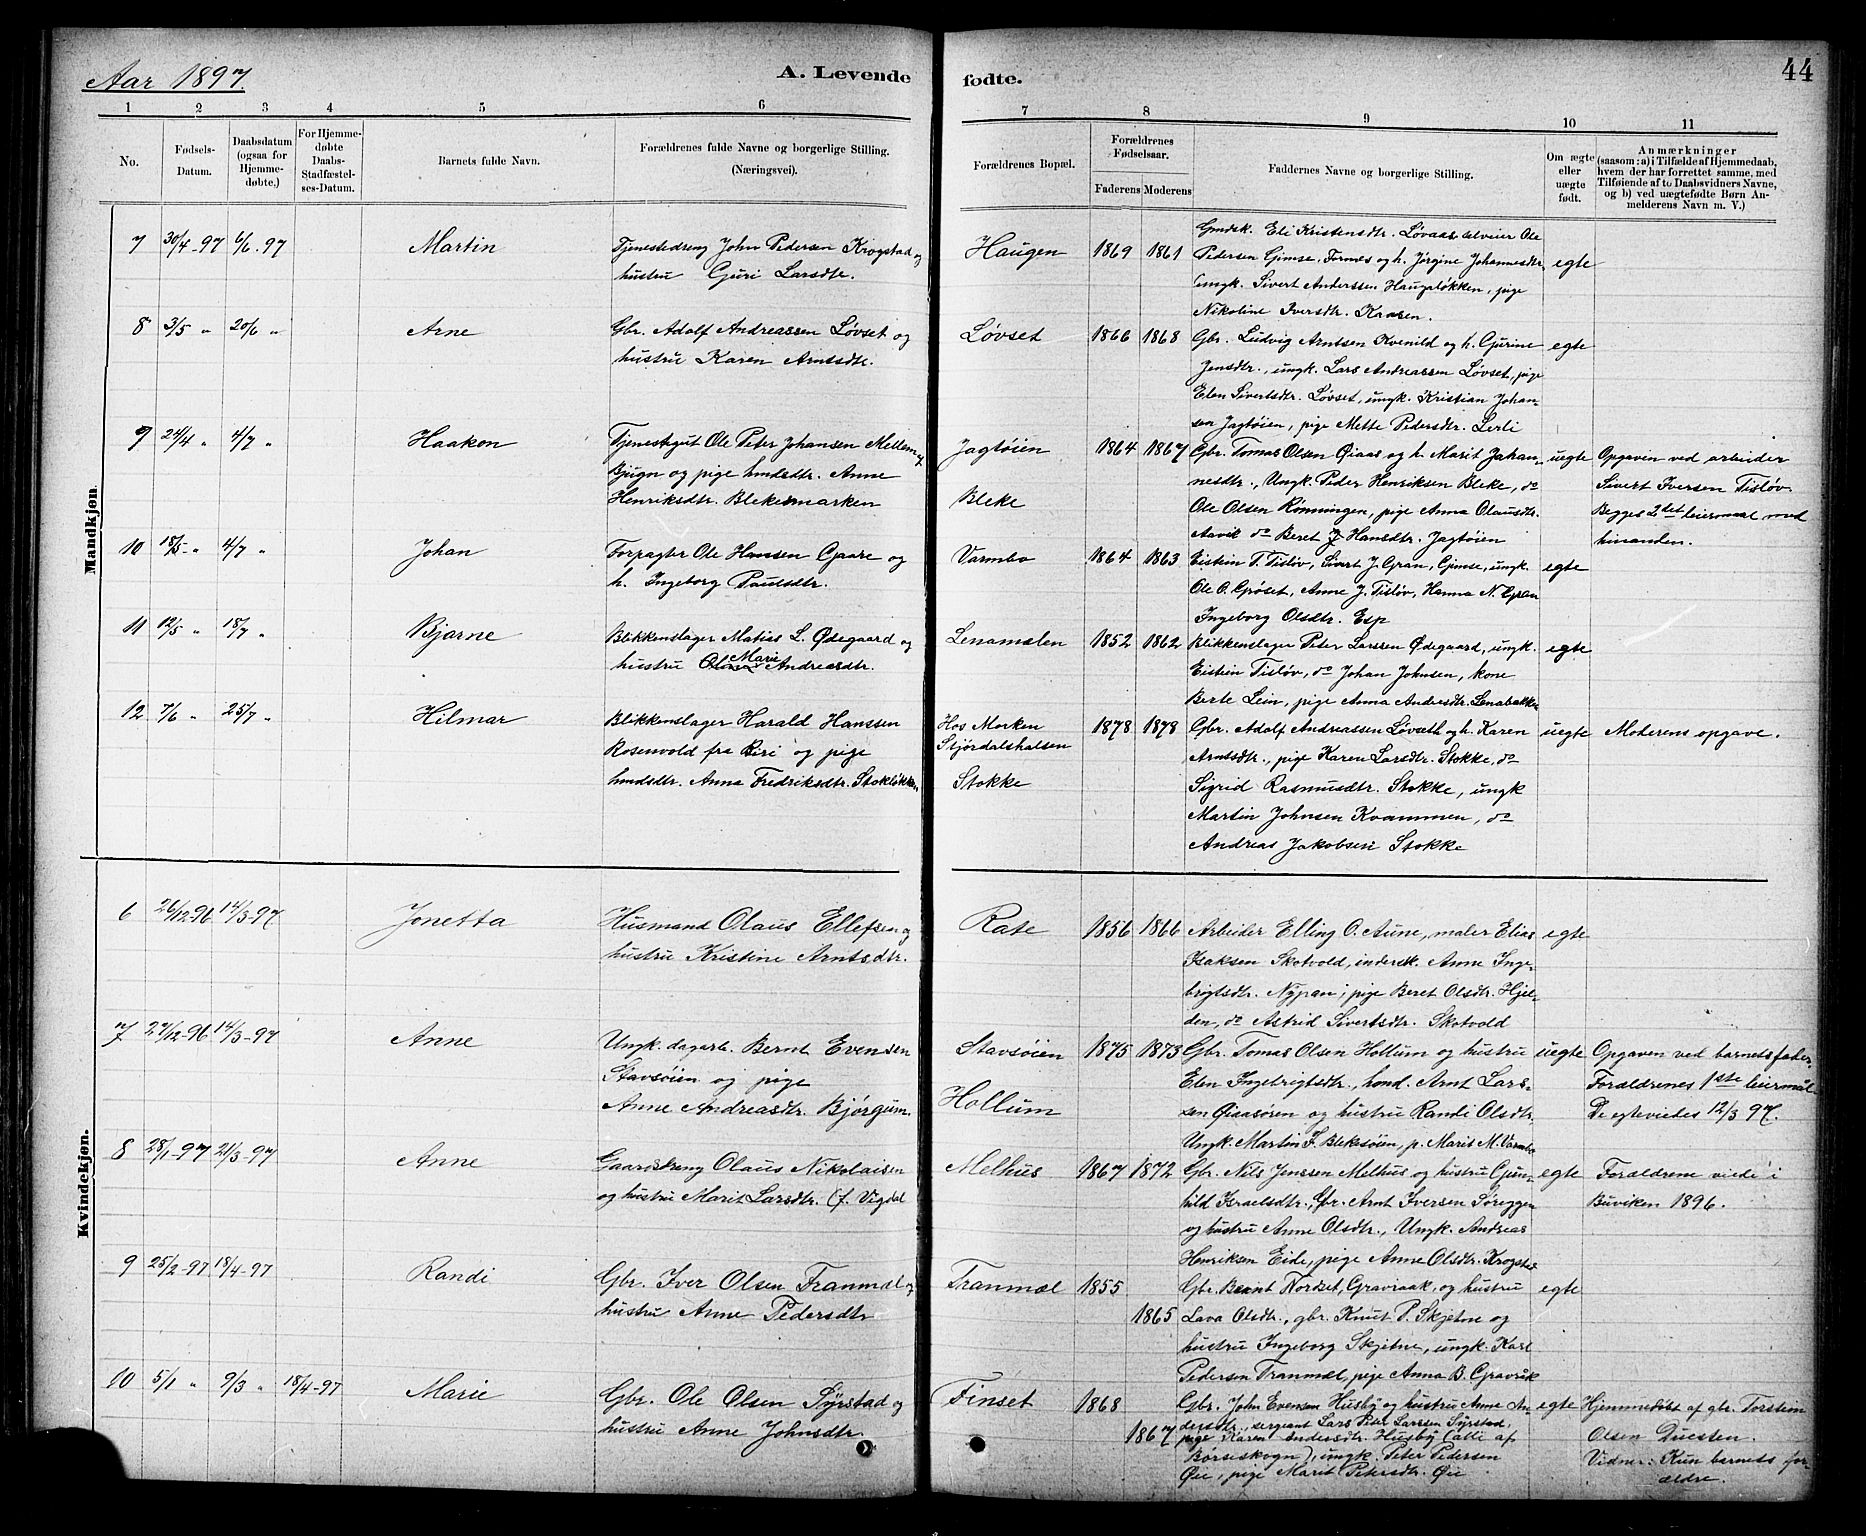 Aar 1897.
A. Levende
fødte.
44
1 2 3 4 5 6 7 8 9 10 11
No.
Fødsels-
Datum.
Daabsdatum
(ogsaa for
Hjemme-
døbte.)
For Hjemme-
døbte
Daabs-
Stadfæstel-
ses-Datum.
Barnets fulde Navn.
Forældrenes fulde Navne og borgerlige Stilling.
(Næringsvei).
Forældrenes Bopæl.
Forældrenes
Fødselsaar.
Faderens Moderens
Faddernes Navne og borgerlige Stilling.
Om ægte
eller
uægte
født.
Anmærkninger
(saasom: a) i Tilfælde af Hjemmedaab,
hvem der har forrettet samme, med
Tilføiende af to Daabsvidners Navne,
og b) ved uægtefødte Børn An-
melderens Navn m. V.)
Mandkjøn.
7 30/4-97 6/6-97 Martin
Tjenestedreng John Pedersen Krogstad og
hustru Guri Larsdtr.
Haugen 1869 1861
Gmdsk. Eli Kristensdtr. Løvaas Ole
Pedersen Gimse, Formes og h. Jørgine Johannesdtr,
ungk. Sivert Anderssen Haugaløkken, pige
Nikoline Iversdtr. Kroken.
egte
8 3/5 " 20/6 " Arne
Gbr. Adolf Andreassen Løvset og
hustru Karen Arntsdtr.
Løvset 1866 1868
Gbr. Ludvig Arntsen Kvenild og h. Gurine
Jensdtr., ungk. Lars Andreassen Løvset, pige
Elen Sivertsdtr. Løvset, ungk. Kristian Johan-
sen Jagtøien, pige Mette Pedersdtr. Lerli
egte
9 24/4 " 4/7 " Haakon
Tjenestegut Ole Peter Johansen Mellem af
Bjugn og pige hmdsdtr. Anne
Henriksdtr. Blekesmarken
Jagtøien
Bleke
1864 1867
Gbr. Tomas Olsen Øiaas og h. Marit Johan-
nesdtr., Ungk. Peder Henriksen Bleke, do
Ole Olsen Rønningen, pige Anna Olausdtr.
Aavik do Beret J Hansdtr. Jagtøien
uegte
Opgaven ved arbeider
Sivert Iversen Tisløv.
Begges 2det leiermaal med
hinanden.
10 18/5 " 4/7 " Johan
Forpagter Ole Hansen Gaare og
h. Ingeborg Paulsdtr.
Varmbo 1864 1863
Eistein T. Tisløv, Sivert J. Gran, Gimse, ungk.
Ole O. Grøset, Anne J. Tisløv, Hanna N. Gran
Ingeborg Olsdtr. Esp
egte
11 12/5 " 18/7 " Bjarne
Blikkenslager Matias L. Ødegaard og
Marie
hustru Olina Andreasdtr.
Lenamælen 1852 1862
Blikkenslager Peter Larssen Ødegaard, ungk.
Eistein Tisløv, do Johan Johnsen, kone
Berte Lein, pige Anna Andersdtr. Lenabakken
egte
12 7/6 " 25/7 " Hilmar
Blikkenslager Harald Hanssen
Rosenvold fra Biri og pige
hmdsdtr. Anna Fredriksdtr. Stokløkken
Hos Morken
Stjørdalshalsen
Stokke
1878 1878
Gbr. Adolf Andreassen Løvseth og h. Karen
Arntsdtr., pige Karen Larsdtr. Stokke, do
Sigrid Rasmusdtr. Stokke, ungk
Martin Johnsen Kvammen, do
Andreas Jakobsen Stokke
uegte
Moderens opgave.
Kvindekjøn.
6 26/12-96 14/3-97 Jonetta
Husmand Olaus Ellefsen og
hustru Kristine Arntsdtr.
Rate 1856 1866
Arbeider Elling O. Aune, maler Elias
Isaksen Skotvold, indersk. Anne Inge-
brigtsdtr. Nypan; pige Beret Olsdtr. Hjel-
den, do Astrid Sivertsdtr. Skotvold
egte
7 27/12-96 14/3-97 Anne
Ungk. dagarb. Bernt Evensen
Stavsøien og pige
Anne Andreasdtr. Bjørgum.
Stavsøien
Hollum
1875 1873
Gbr. Tomas Olsen Hollum og hustru
Elen Ingebrigtsdtr., hmd. Arnt Lars-
sen Øiaasøren og hustru Randi Olsdtr.
Ungk. Martin F. Blekesøien, p. Marit M. Varmbo
uegte
Opgaven ved barnets fader.
Forældrenes 1ste leiermål.
De egteviedes 12/3 97.
8 28/1-97 21/3-97 Anne
Gaardsdreng Olaus Nikolaisen
og hustru Marit Larsdtr. (f. Vigdal
Melhus 1867 1872
Gbr. Nils Jenssen Melhus og hustru Gun-
hild Israelsdtr., Gbr. Arnt Iversen Søreggen
og hustru Anne Olsdtr., Ungk. Andreas
Henriksen Eide, pige Anne Olsdtr. Krogstad
egte
Forældrene viede i
Buviken 1896.
9 25/2-97 18/4-97 Randi
Gbr. Iver Olsen Tranmæl og
hustru Anne Pedersdtr
Tranmæl 1855
1865
Gbr. Bernt Nordset, Graviaak, og hustru
Lava Olsdtr., gbr. Knut P. Skjetne og
hustru Ingeborg Skjetne, ungk. Karl
Pedersen Tranmæl, pige Anna B. Gravrik
egte
10 5/1 " 9/3 " 18/4-97 Marie
Gbr. Ole Olsen Syrstad og
hustru Anne Johnsdtr.
Finset 1868
1867
Gbr. John Evensen Husby og hustru Anne An-
dersdtr., sergeant Lars Peter Larssen Syrstad,
pige Karen Andersdtr. Husby (alle af
Børseskogn), ungk. Peter Pedersen
Øie, pige Marit Petersdtr. Øie
egte
Hjemmedøbt af gbr. Torstein
Olsen Duesten.
Vidner: Kun barnets for-
ældre.